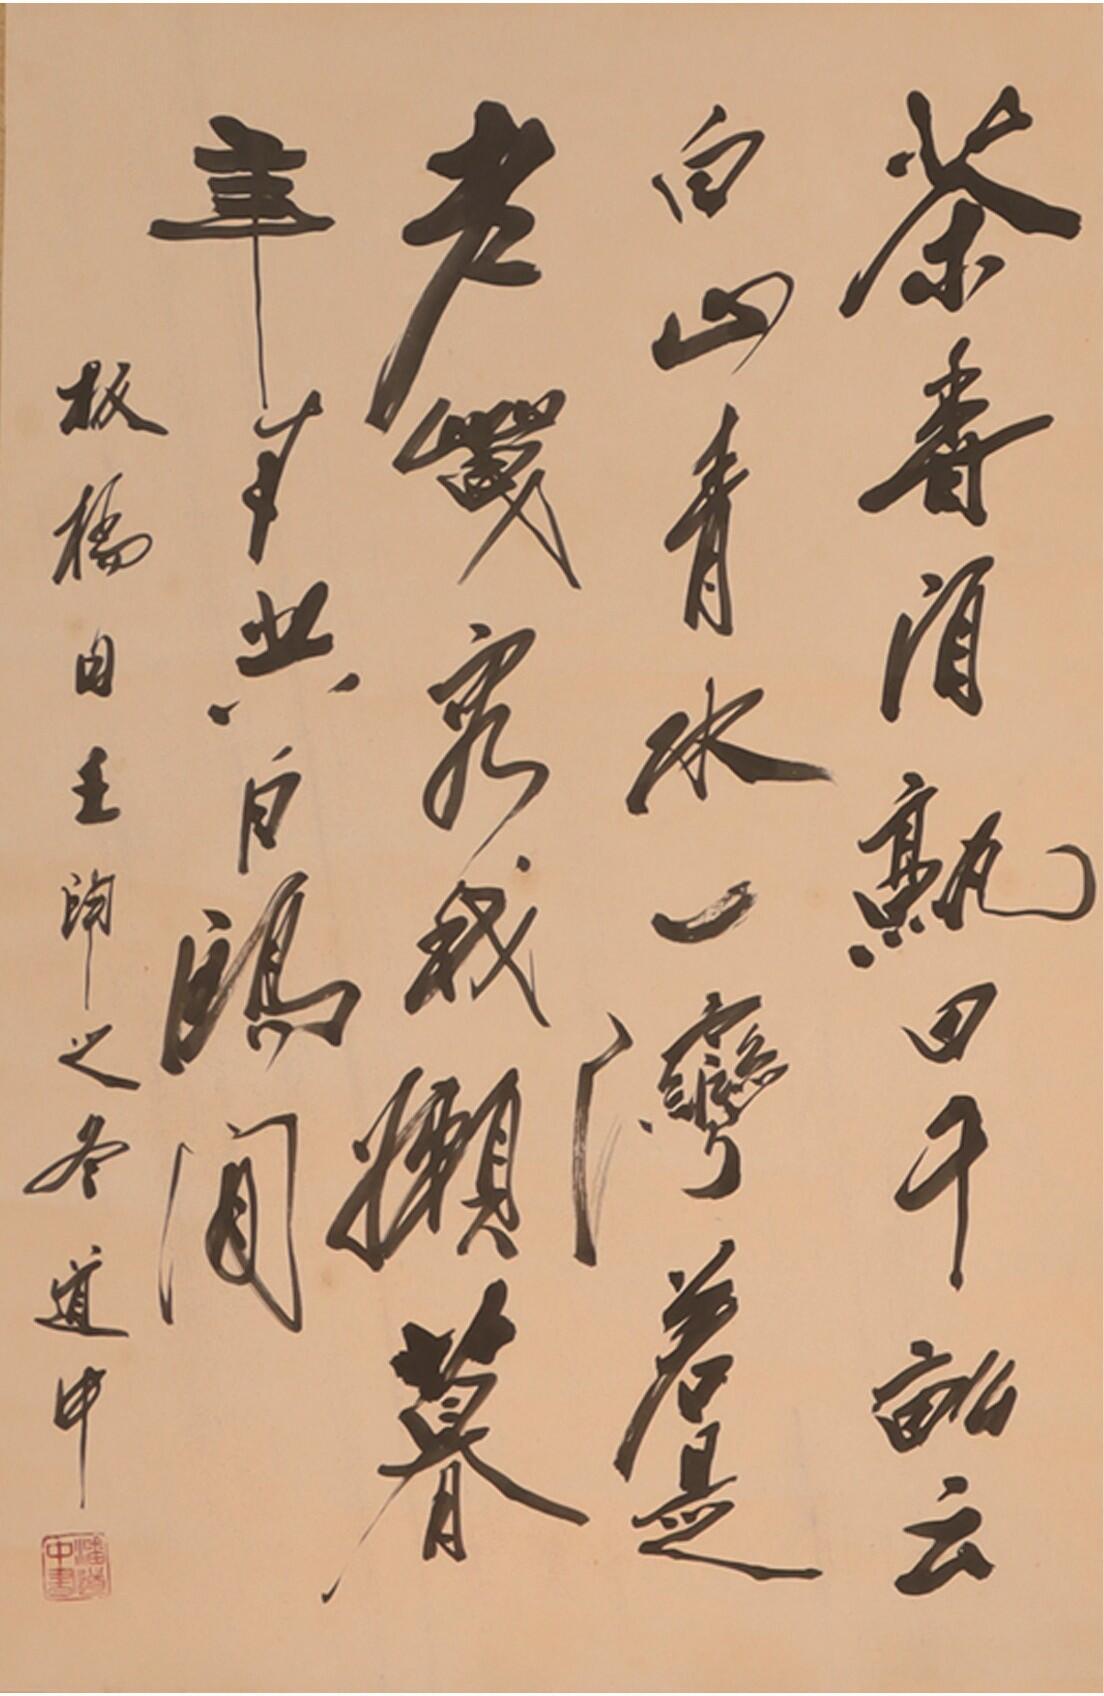 茶香酒熟田千畝云
白山青水一灣若是
老容我懶暮
年來與白鷗閒
板橋句壬之冬道中
潘道中書